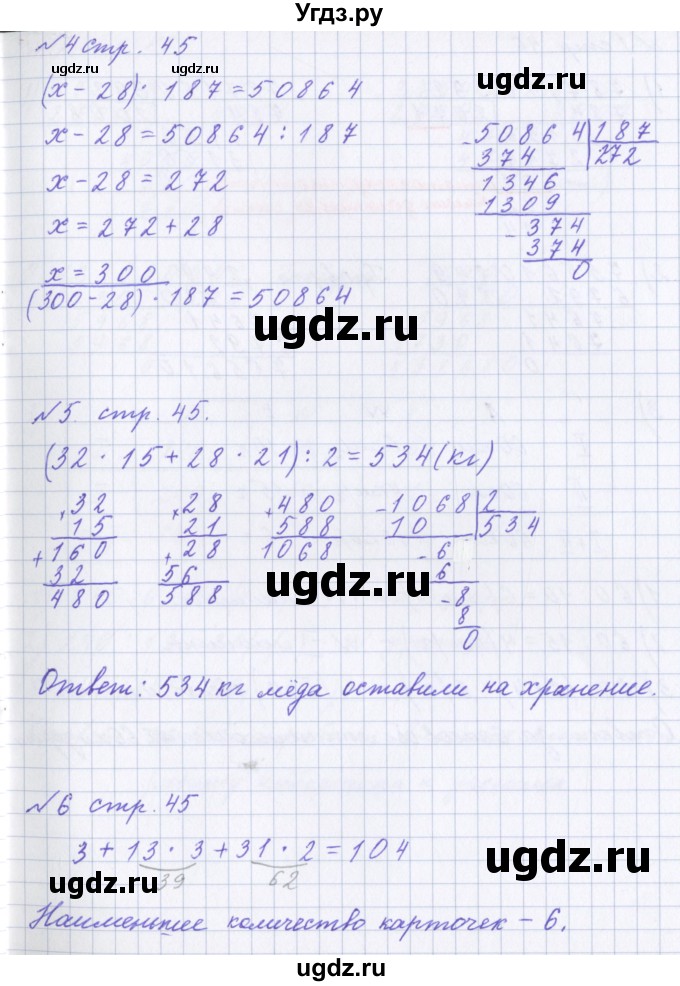 Угдз.ру
№4 стр. 45
ugdz.ru ugdz.ru
(x - 28) · 187 = 50864
ugdz.ru
x - 28 = 50864 : 187
x - 28 = 272
x = 272 + 28
x = 300
(300 - 28) · 187 = 50864
- 50864 | 187
374 272
1346
1309
- 374
374
0
ugdz.ru
№5. стр. 45.
(32 · 15 + 28 · 21) : 2 = 534 (кг)
× 32
15
+ 160
32
480
× 28
21
+ 28
56
588
+ 480
588
1068
- 1068 | 2
10 534
- 6
6
- 8
8
0
ugdz.ru
Ответ: 534 кг мёда оставили на хранение.
№6 стр. 45
3 + 13 · 3 + 31 · 2 = 104
39 62
ugdz.ru ugdz.ru
Наименьшее количество карточек - 6.
ugdz.ru